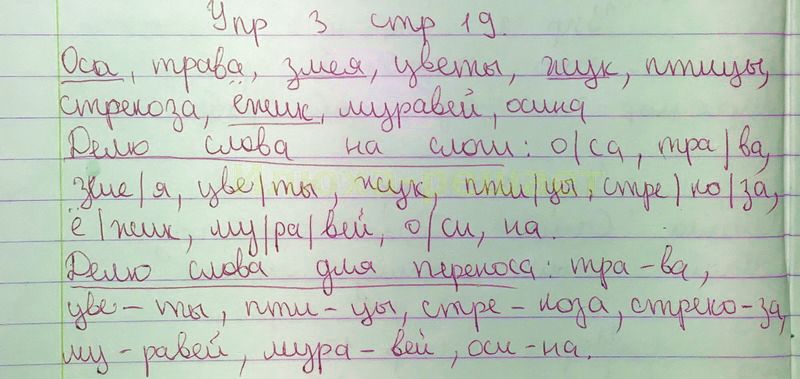 Упр 3 стр 19.
Оса, трава, змея, цветы, жук, птицы,
стрекоза, ёжик, муравей, осина
Делю слова на слоги: о/са, тра/ва,
зме/я, цве/ты, жук, пти/цы, стре/ко/за,
ё/жик, му/ра/вей, о/си, на.
Делю слова для переноса: тра-ва,
цве-ты, пти-цы, стре-коза, стреко-за,
му-равей, мура-вей, оси-на.